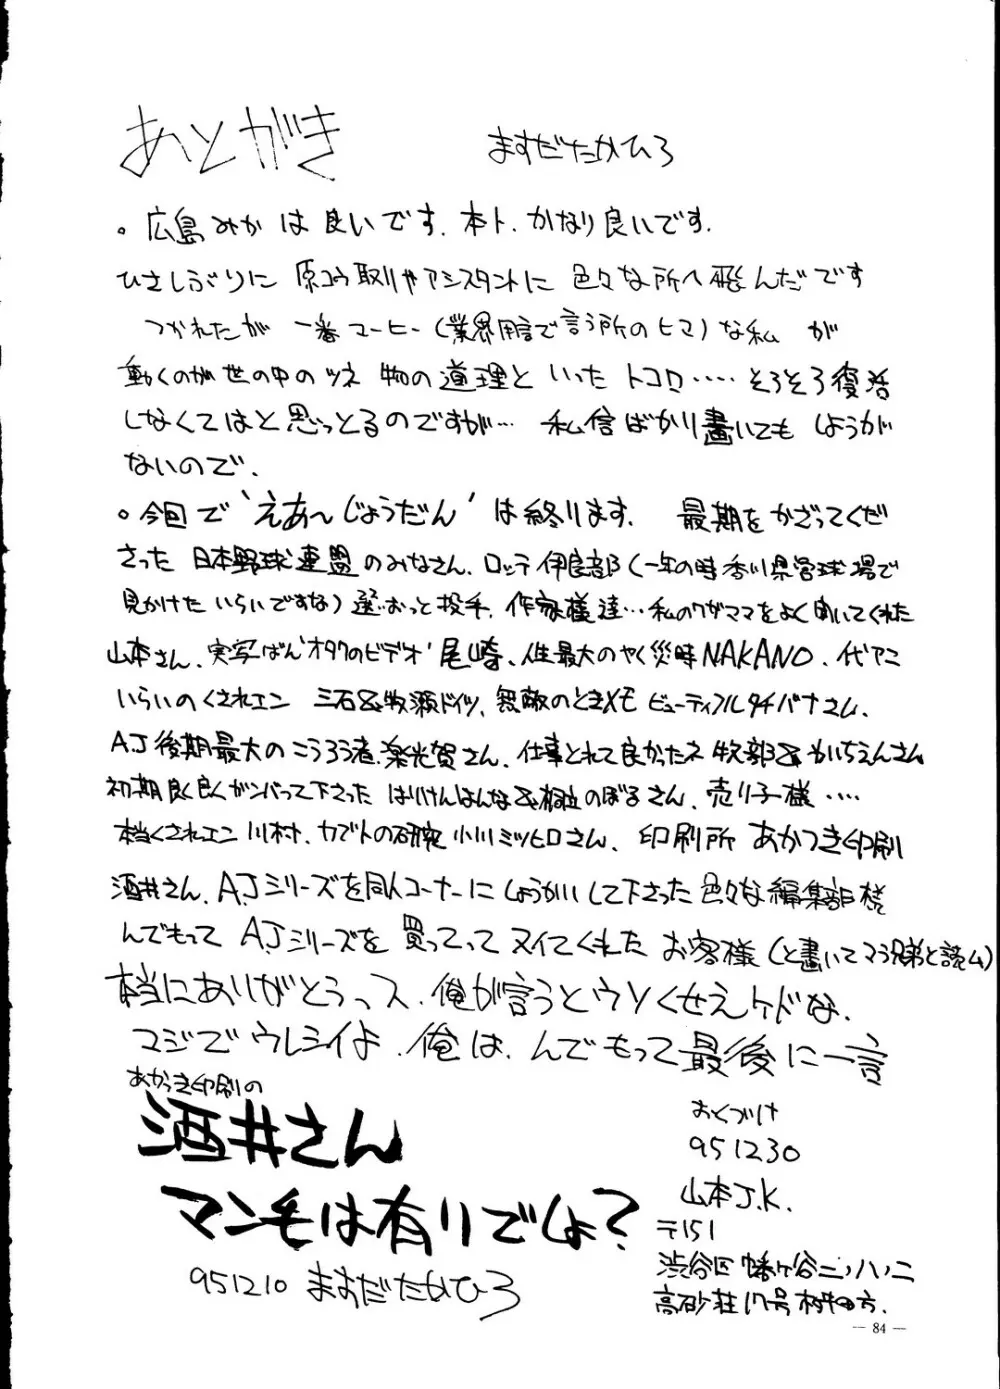 あとがき
ますだたかひろ
。広島みかは良いです.本ト.かなり良いです.
ひさしぶりに 原コウ取りやアシスタントに 色々な所へ飛んだです
つかれたが 一番マーヒー(業界用語で言う所のヒマ)な私 が
動くのが世の中のツネ 物の道理といったトコロ‥‥ そろそろ復活
しなくてはと思っとるのですが… 私信ばかり書いてもしようが
ないので.
。今回で'えあ〜じょうだん'は終ります. 最期をかざってくだ
さった 日本野球連盟のみなさん.ロッテ伊良部(一年の時香川県営球場で
見かけたいらいですな) おっと投手.作家様達…私のワガママをよく聞いてくれた
山本さん、実写ばん'オタクのビデオ'尾崎、人生最大のやく災時NAKANO.代アニ
いらいのくされエン 三石&牧瀬ドイツ、無敵のときメモ ビューティフルタチバナさム、
AJ後期最大のこうろう者,楽光賀さん.仕事とれて良かったネ 牧部&かいちえんさん
初期良く良くガンバって下さった はりけんはんな&桐立のぼるさん、売り子様‥‥
本当くされエン 川村、カブトの研究 小川ミツヒロさん、印刷所 あかつき印刷
酒井さん.AJシリーズを同人コーナーにしょうかいして下さった色々な編集部様
んでもって AJシリーズを買ってってヌイてくれたお客様(と書いてマヴ兄弟と読ム)
本当にありがとうっス.俺が言うとウソくせえケドな.
マジでウレシイよ.俺は.んでもって最後に一言
あかつき印刷の
酒井さん
マン毛は有りでしょ?
951210 ますだたかひろ
おくづけ
951230
山本J.K.
〒151
渋谷区幡ヶ谷二ノ八ノ二
高砂荘17号 方.
— 84 —